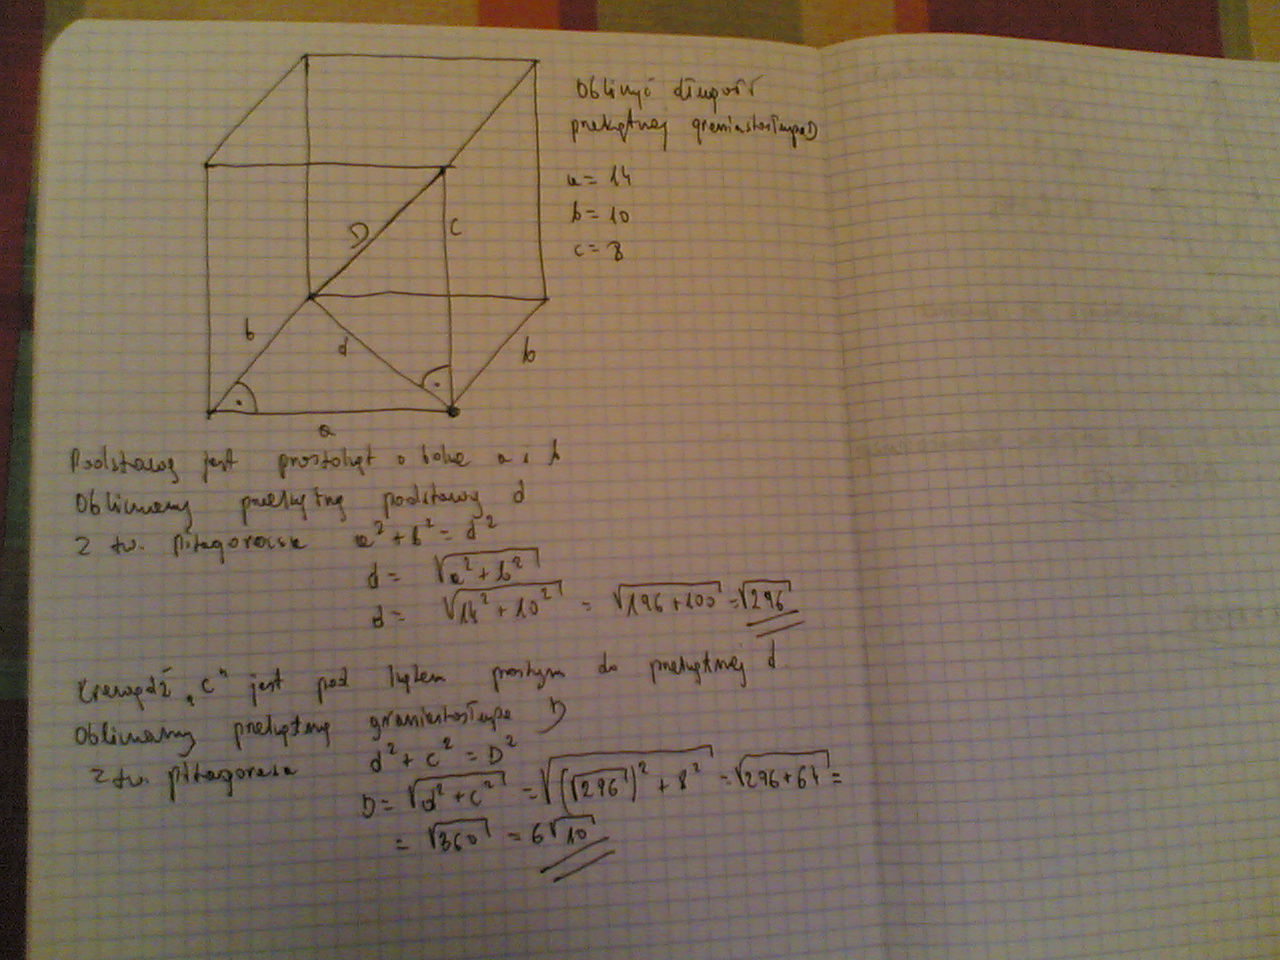 Obliczyć długość
przekątnej graniastosłupa D
a = 14
b = 10
c = 8
D
c
b
d
b
a
Podstawą jest prostokąt o boku a i b
Obliczamy przekątną podstawy d
Z tw. Pitagorasa a² + b² = d²
d = √(a² + b²)
d = √(14² + 10²) = √(196 + 100) = √296
Krawędź „c" jest pod kątem prostym do przekątnej d.
Obliczamy przekątną graniastosłupa D
z tw. pitagorasa d² + c² = D²
D = √(d² + c²) = √((√296)² + 8²) = √(296 + 64) =
= √360 = 6√10